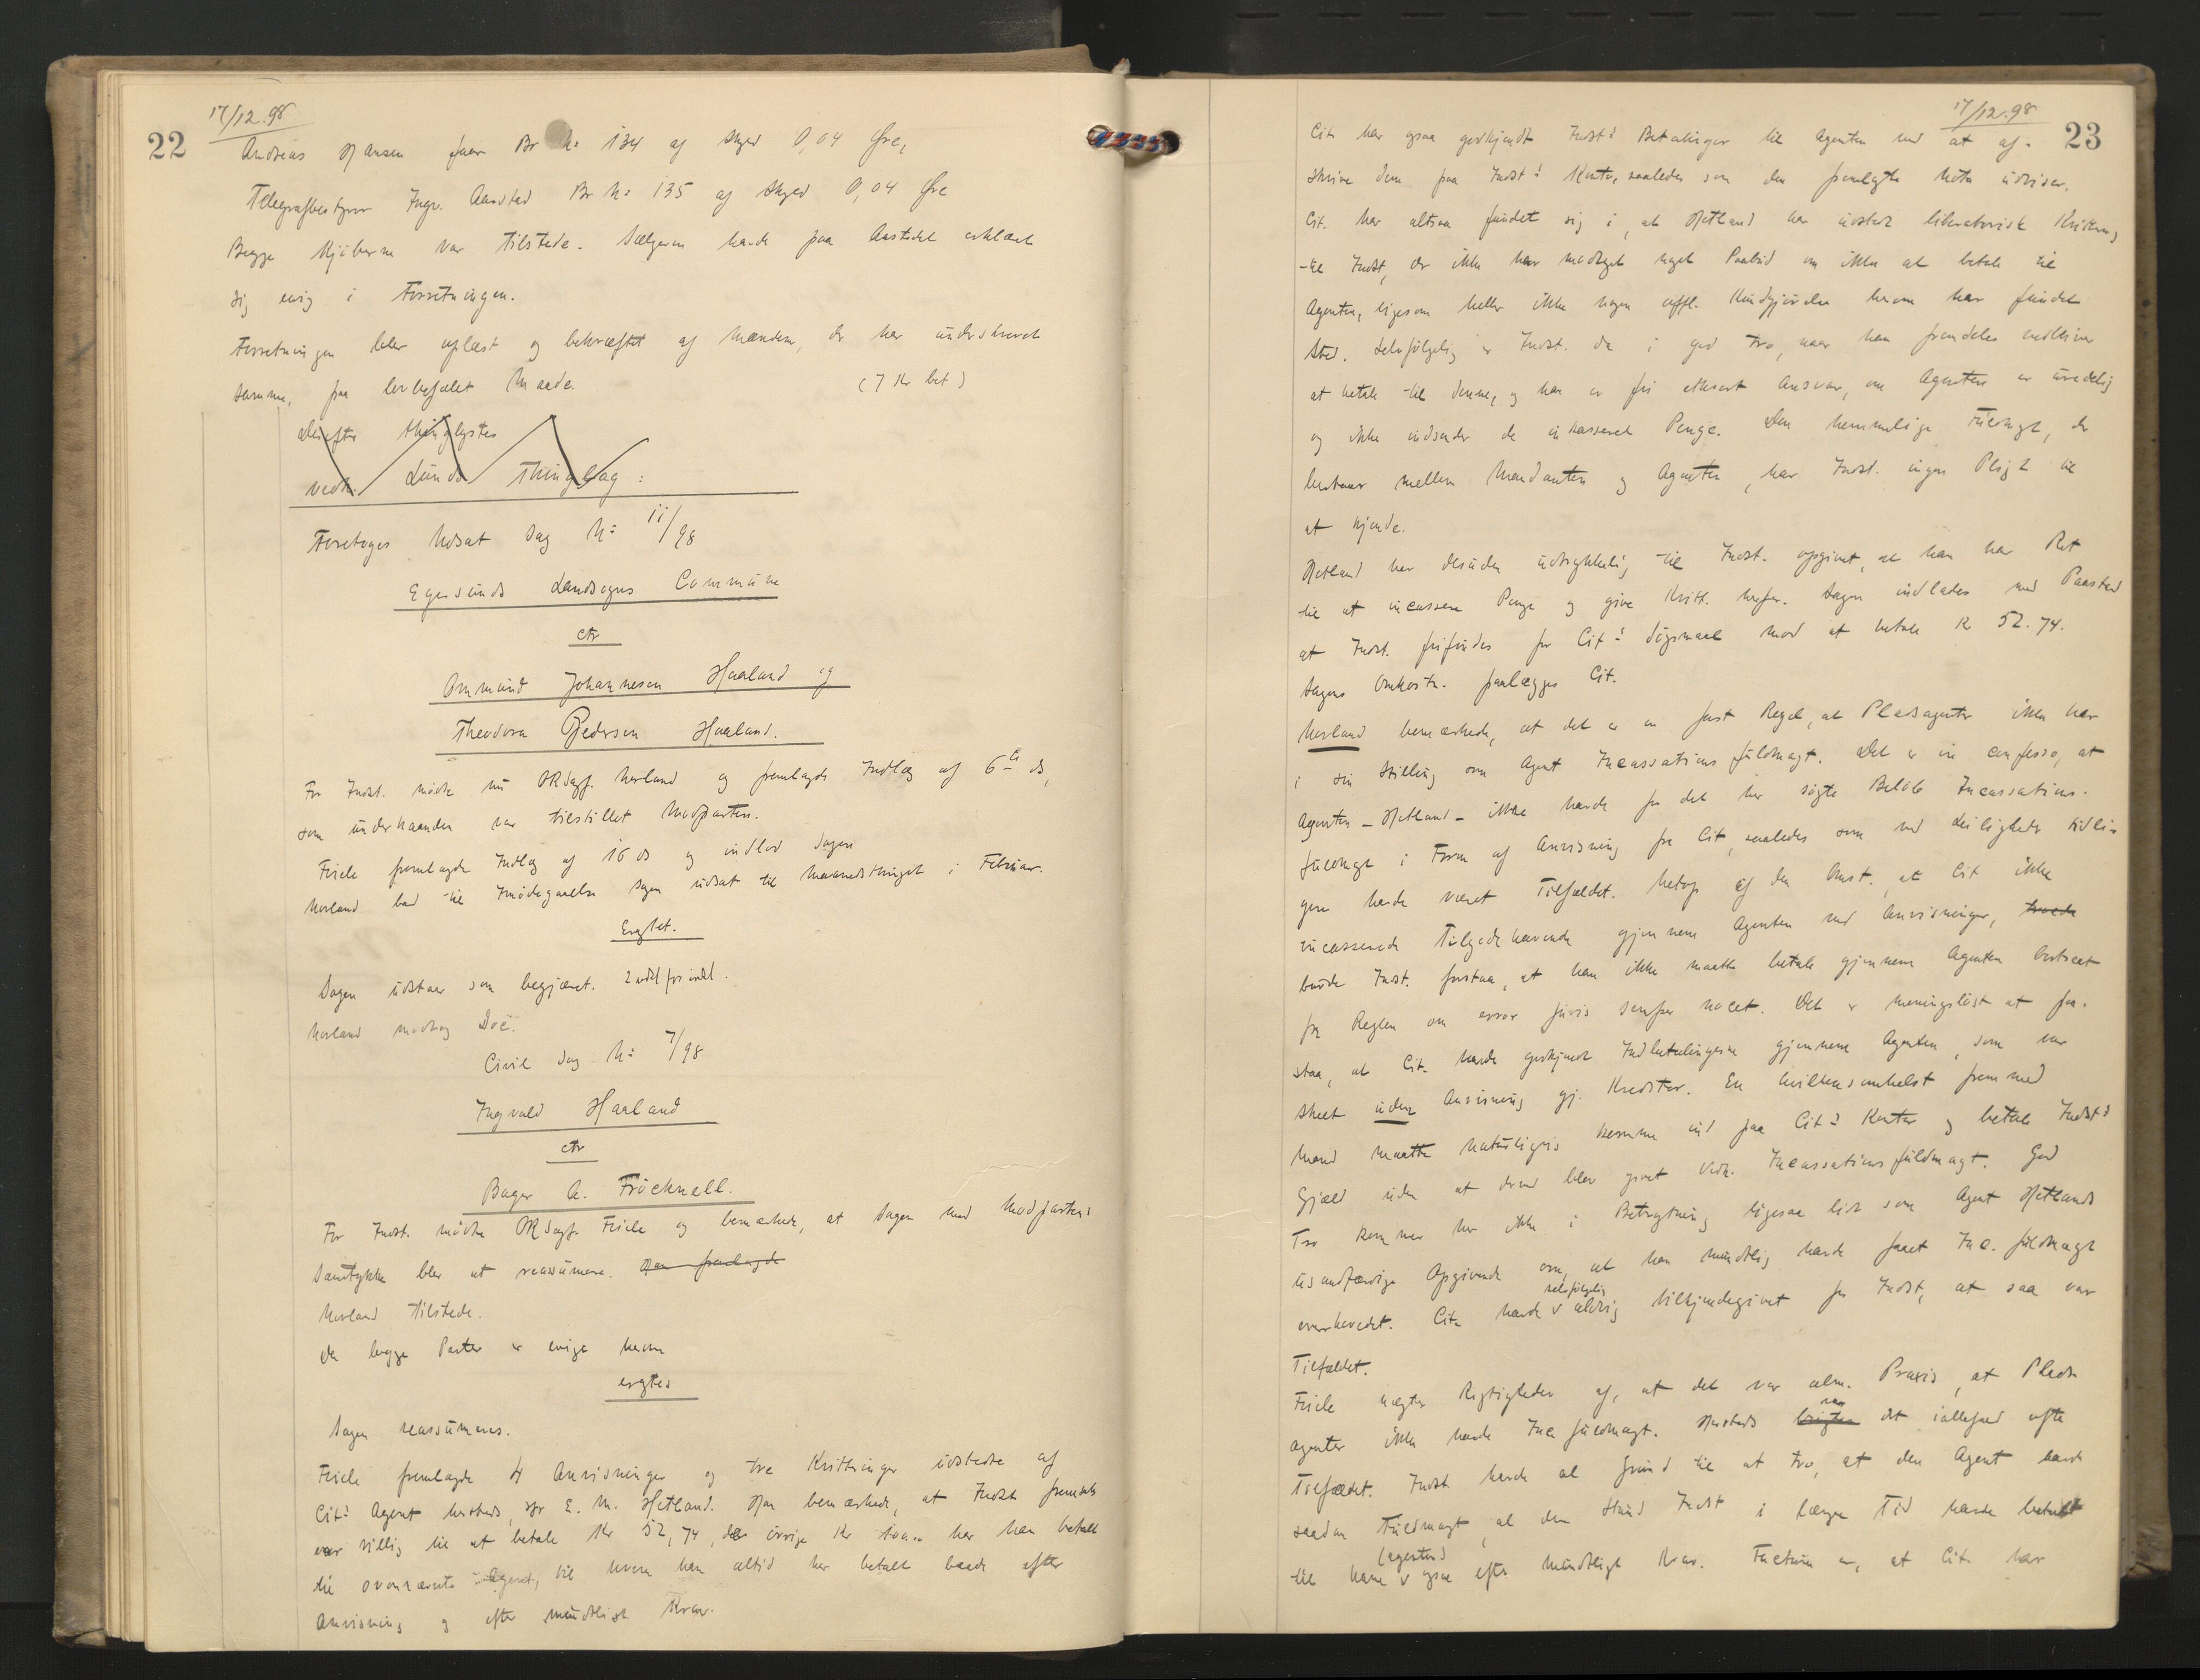 22
17/12.98
Andreas Hansen faar Br N: 134 af Skyld 0,04 Øre,
Telegrafbestyrer Ingv. Aanstad Br N: 135 af Skyld 0,04 Øre
Begge Kjøberne var tilstede. Sælgeren havde paa Aastedet erklæret
sig enig i Forretningen.
Forretningen blev oplæst og bekræftet af Mændene, der har underskrevet
samme, paa lovbefalet Maade. (7 Kr bet)
Derefter thinglystes
vedk. Lunds Thinglag:
Foretoges Udsat Sag N: 11/98
Egersunds Landsogns Commune
ctr
Ommund Johannesen Haaland og
Theodora Pedersen Haaland.
For Indst. mødte nu ORSagf. Norland og fremlagde Indlæg af 6te ds,
som underhaanden var tilstillet Modparten.
Feiele fremlagde Indlæg af 16 ds og indlod Sagen
Norland bad til Imødegaaelse Sagen udsat til Maanedsthinget i Februar.
Eragtet.
Sagen udstaar som begjæret.
Norland modtog Doc.
Civil Sag N: 7/98
Ingvald Haaland
ctr
Bager A. Fröcknell.
For Indst. mødte ORSagf. Feiele og bemærkede, at Sagen med Modpartens
Samtykke blev at reassumere. Han fremlagde
Norland tilstede.
Da begge Parter er enige herom
eragtes
Sagen reassumeres.
Feiele fremlagde 4 Anvisninger og tre Kvitteringer udstedte af
Cit: Agent hersteds, Hr E. M. Hetland. Han bemærkede, at Indst fremdeles
var villig til at betale Kr 52,74, den øvrige Kr har han betalt
til ovennævnte Agent, til hvem han altid har betalt baade efter
Anvisning og efter mundtligt Krav.
17/12.98
23
Cit. har ogsaa godkjendt Indst: Betalinger til Agenten ved at af-
skrive dem paa Indst: Konto, saaledes som den fremlagte Nota udviser.
Cit. har altsaa fundet sig i, at Hetland har udstedt liberatorisk Kvittering
til Indst, der ikke har modtaget noget Paabud om ikke at betale til
Agenten, ligesom heller ikke nogen offtl. Kundgjørelse herom har fundet
Sted. Selvfølgelig er Indst. da i god Tro, naar han fremdeles vedbliver
at betale til denne, og han er fri ethvert Ansvar, om Agenten er uredelig
og ikke indsender de inkasserede Penge. Den hemmelige Fuldmagt, der
bestaar mellem Mandanten og Agenten, har Indst. ingen Pligt til
at kjende.
Hetland har desuden udtrykkelig til Indst. opgivet, at han har Ret
til at incassere Penge og give Kvitt. herfor. Sagen indlades med Paastand
at Indst. frifindes for Cit: Søgsmaal mod at betale Kr 52.74.
Sagens Omkostn. paalægges Cit.
Norland bemærkede, at det er en fast Regel, at Pladsagenter ikke har
i sin Stilling som Agent Incassations fuldmagt. Det er in confesso, at
Agenten - Hetland - ikke havde for det her søgte Beløb Incassations-
fuldmagt i Form af Anvisning fra Cit, saaledes som ved Leiligheder tidli-
gere havde været Tilfældet. Netop af den Omst., at Cit ikke
incasserede Tilgodehavende gjennem Agenten ved Anvisninger, havde
burde Indst. forstaa, at han ikke maatte betale gjennem Agenten bortseet
fra Reglen om error juris semper nocet. Det er meningsløst at paa-
staa, at Cit. havde godkjendt Indbetalingerne gjennem Agenten, som var
skeet uden Anvisning gj. Kreditor. En hvilkensomhelst fremmed
Mand maatte naturligvis komme ind paa Cit: Kontor og betale Indst:
Gjæld uden at derved blev givet Vedk. Incassationsfuldmagt. God
Tro kommer her ikke i Betragtning ligesaa lidt som Agent Hetlands
usandfærdige Opgivende om, at han mundtlig havde faaet Inc. fuldmagt
overhovedet. Cit. havde selvfølgelig aldrig tilkjendegivet for Indst, at saa var
Tilfældet.
Feiele nægter Rigtigheden af, at det var alm. Praxis, at Plads-
agenter ikke havde Inca fuldmagt. Hersteds var det iallefald ofte
Tilfældet. Indst havde al Grund til at tro, at den Agent havde
saadan Fuldmagt, al den Stund Indst i længere Tid havde betalt
til ham (agenten) ogsaa efter mundtligt Krav. Factum er, at Cit. har